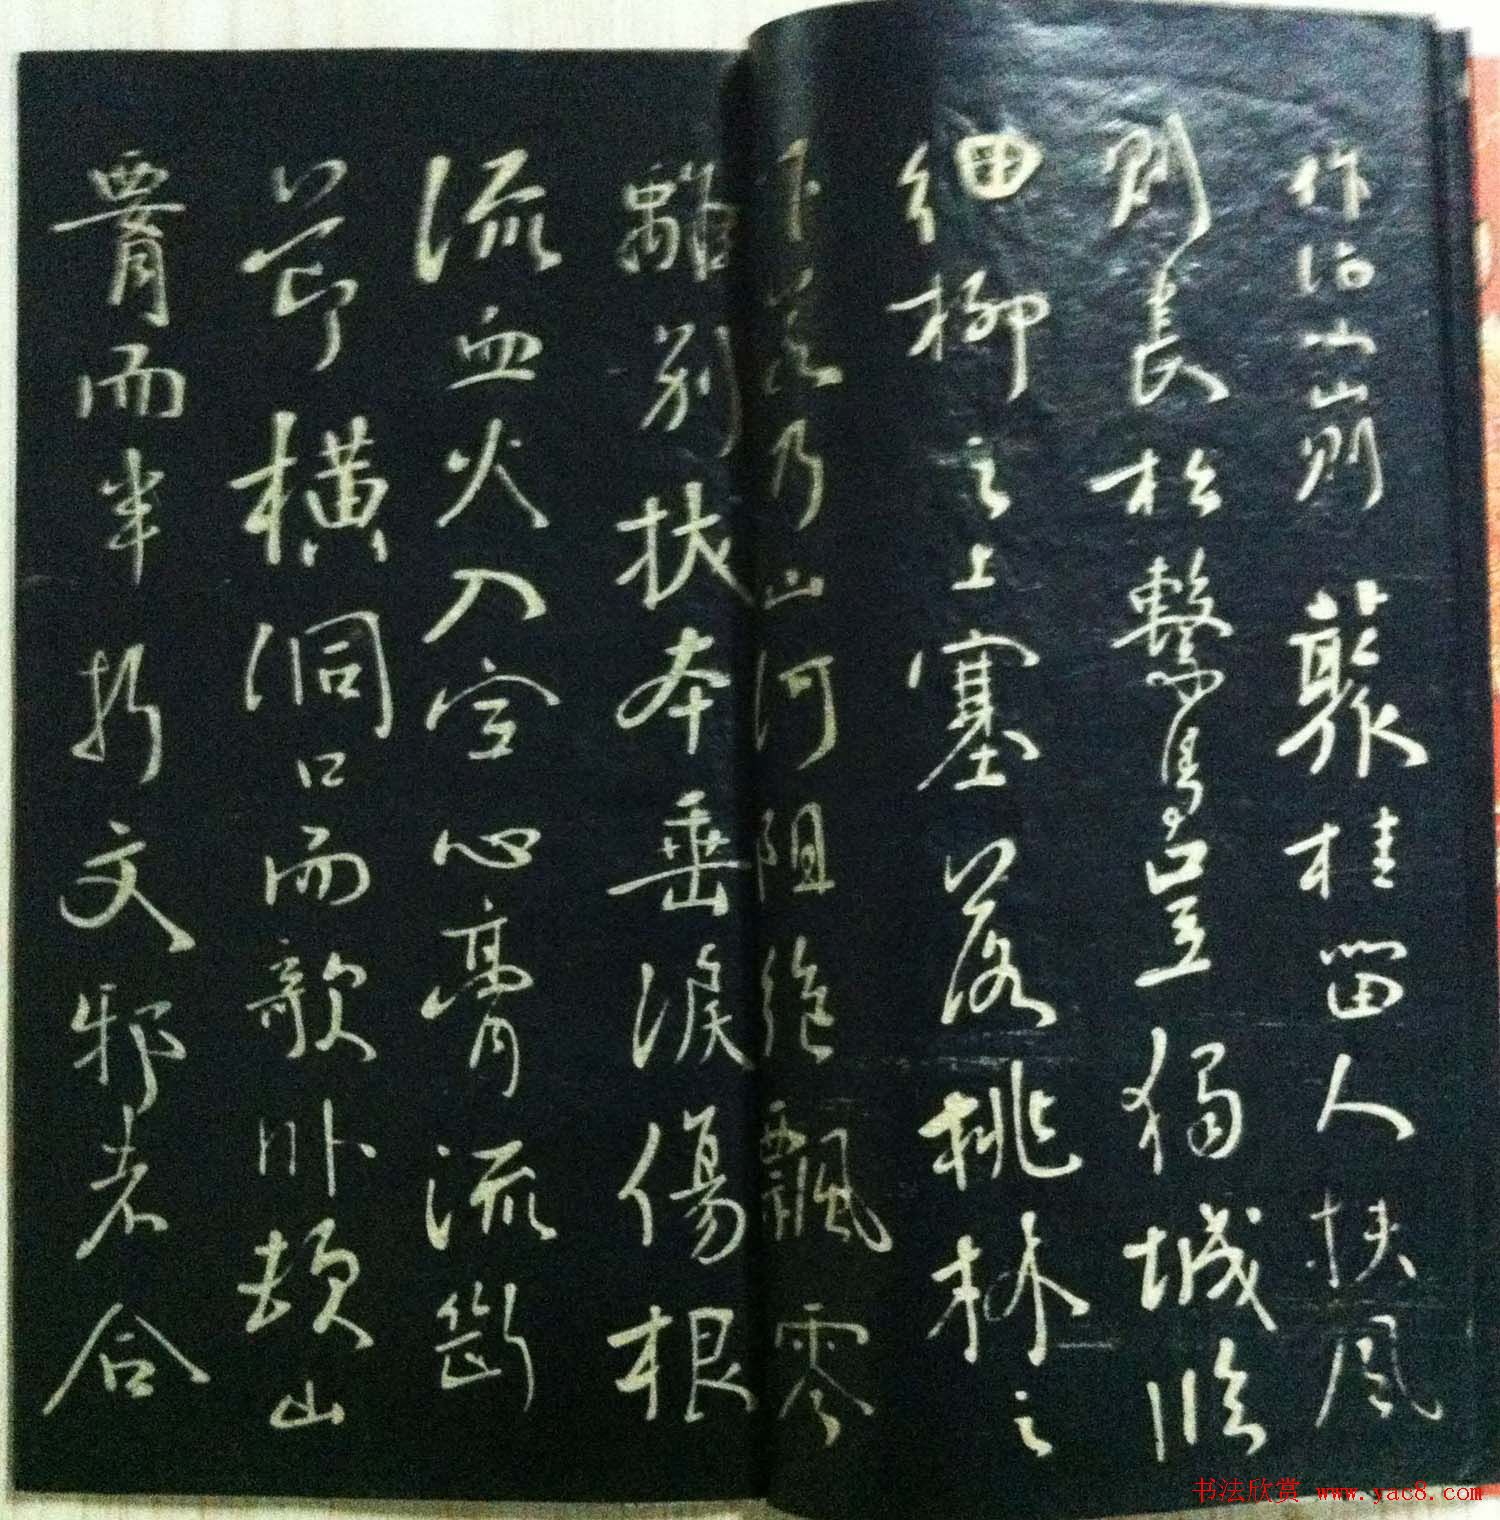 作冶小山則叢桂留人扶風
則長松繫馬豈獨城臨
細柳之上塞落桃林之
下若乃山河阻絕飄零
離別拔本垂淚傷根
流血火入空心膏流斷
節橫洞口而欹臥頓山
腰而半折文邪者合
书法欣赏 www.yac8.com